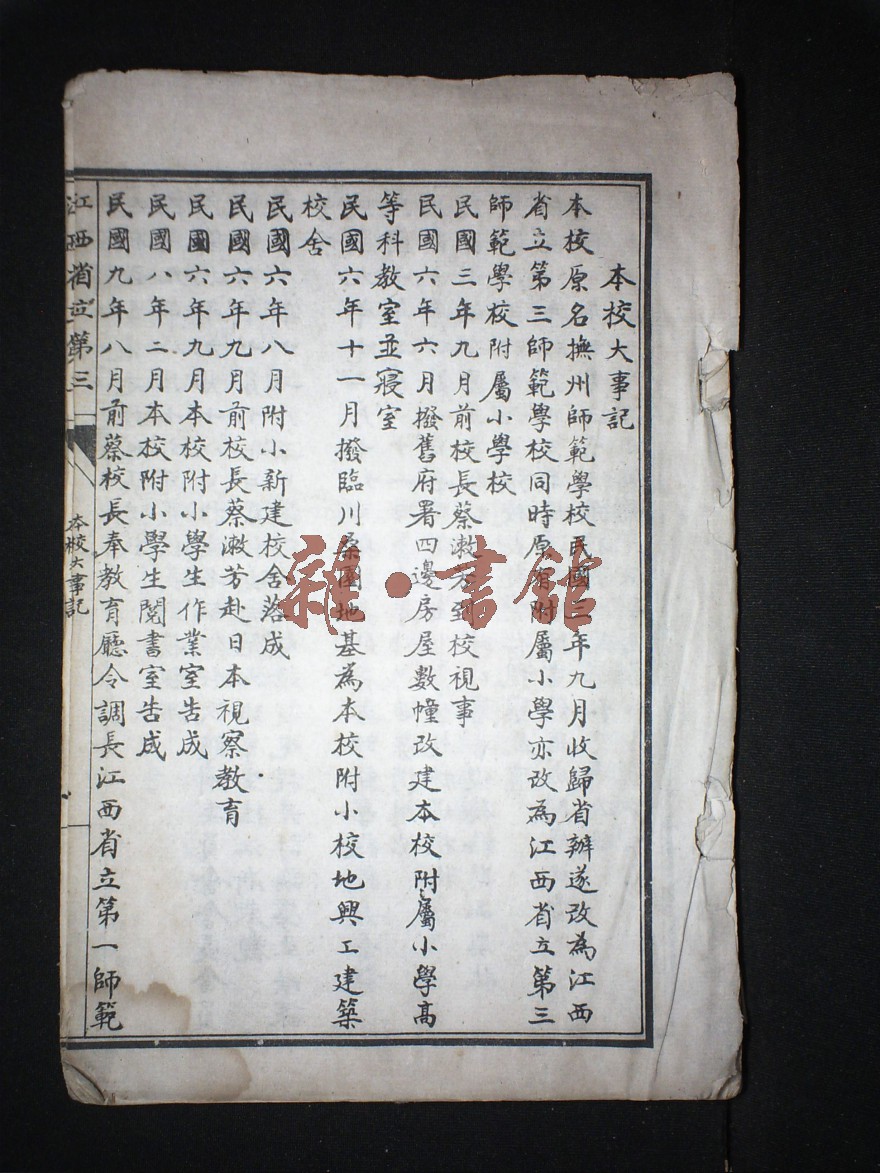 本校大事記
本校原名撫州師範學校民國三年九月收歸省辦遂改為江西
省立第三師範學校同時原有附屬小學亦改為江西省立第三
師範學校附屬小學校
民國三年九月前校長蔡漱芳到校視事
民國六年六月撥舊府署四邊房屋數幢改建本校附屬小學高
等科教室並寢室
民國六年十一月撥臨川桑園地基為本校附小校地興工建築
校舍
民國六年八月附小新建校舍落成
民國六年九月前校長蔡漱芳赴日本視察教育
民國六年九月本校附小學生作業室告成
民國八年二月本校附小學生閱書室告成
民國九年八月前蔡校長奉教育廳令調長江西省立第一師範
江西省立第三
本校大事記
雜·書館